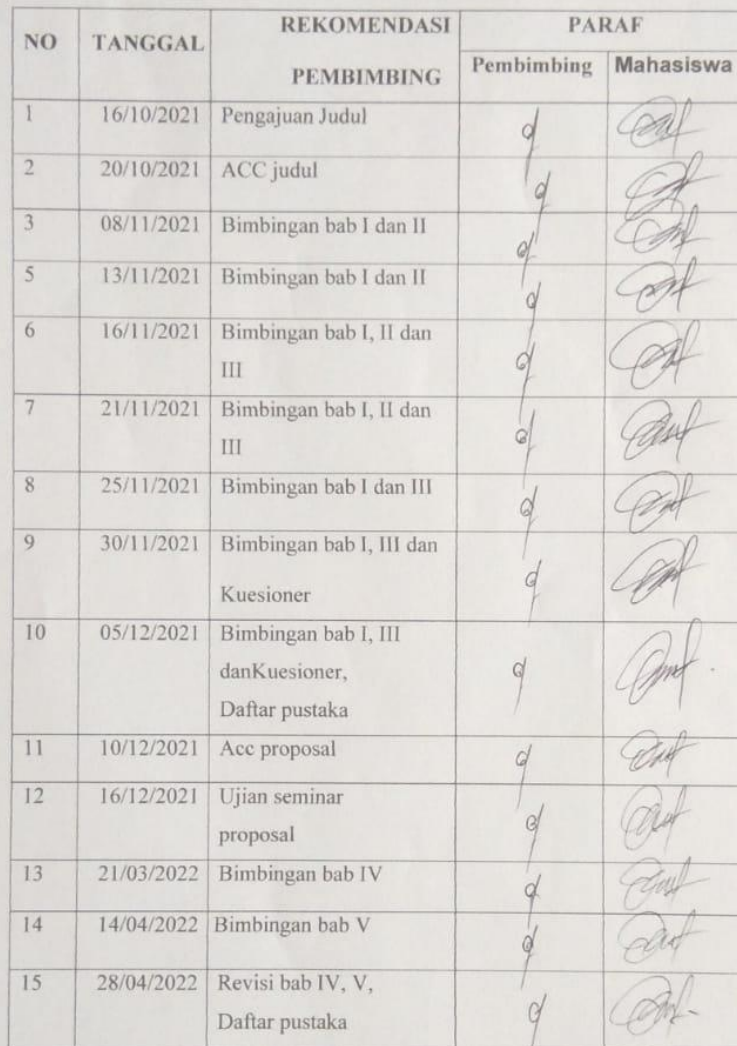 NO TANGGAL REKOMENDASI PEMBIMBING PARAF
Pembimbing Mahasiswa
1 16/10/2021 Pengajuan Judul
2 20/10/2021 ACC judul
3 08/11/2021 Bimbingan bab I dan II
5 13/11/2021 Bimbingan bab I dan II
6 16/11/2021 Bimbingan bab I, II dan
III
7 21/11/2021 Bimbingan bab I, II dan
III
8 25/11/2021 Bimbingan bab I dan III
9 30/11/2021 Bimbingan bab I, III dan
Kuesioner
10 05/12/2021 Bimbingan bab I, III
danKuesioner,
Daftar pustaka
11 10/12/2021 Acc proposal
12 16/12/2021 Ujian seminar
proposal
13 21/03/2022 Bimbingan bab IV
14 14/04/2022 Bimbingan bab V
15 28/04/2022 Revisi bab IV, V,
Daftar pustaka